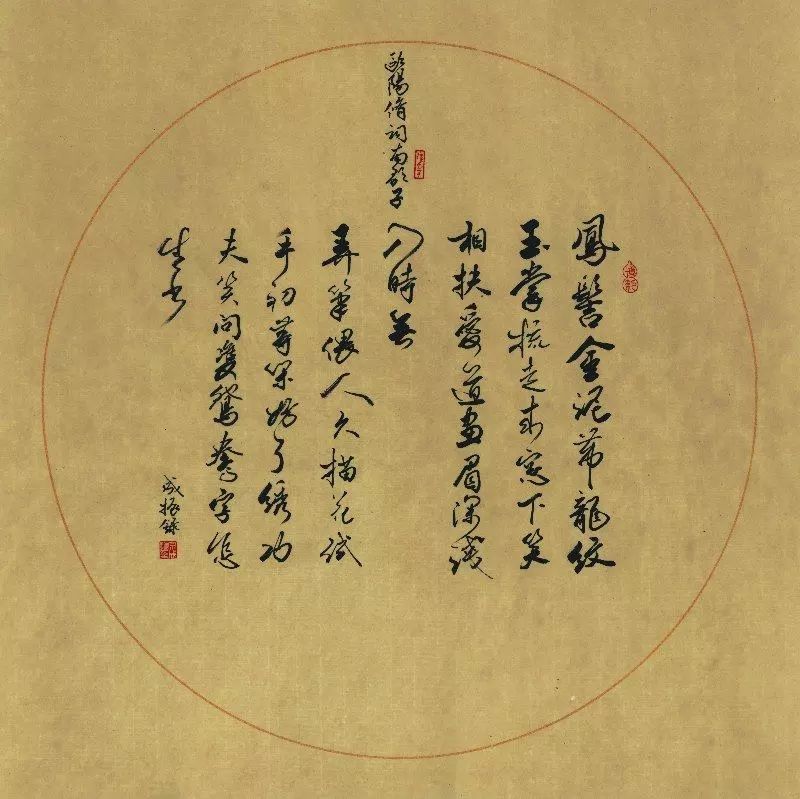 歐陽脩詞南歌子
鳳髻金泥帶龍紋
玉掌梳走来窓下笑
相扶愛道畫眉深淺
入時無
弄筆偎人久描花试
手初等閑妨了绣功
夫笑问雙鴛鴦字怎
生书
振録